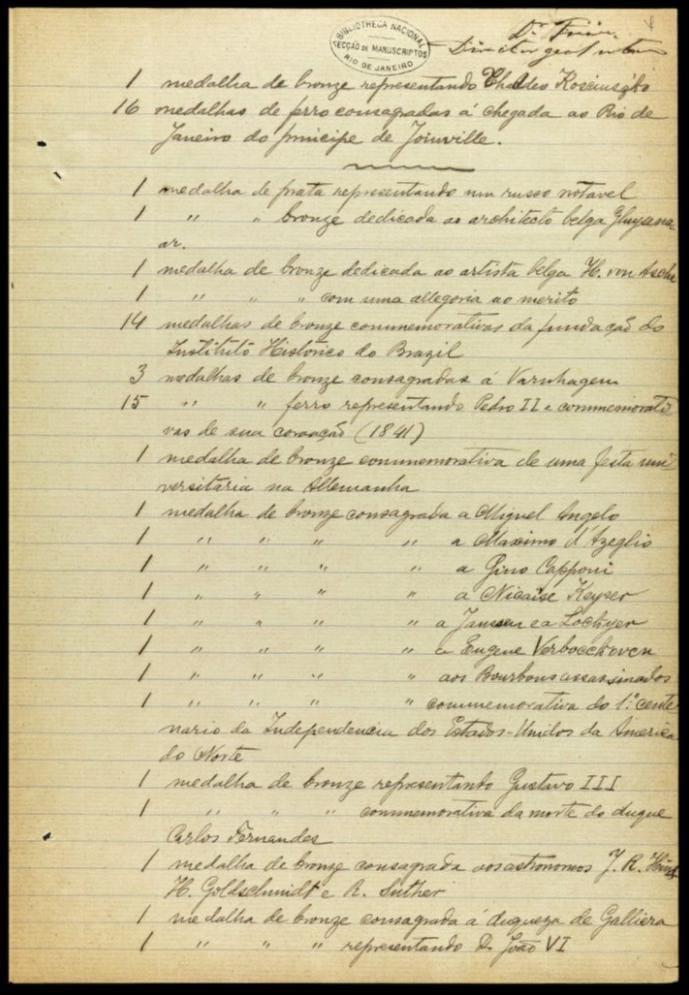 BIBLIOTHECA NACIONAL
SECÇÃO DE MANUSCRIPTOS
RIO DE JANEIRO
Dr.
Director geral
1 medalha de bronze representando Thadeo Kosciuszko
16 medalhas de ferro consagradas á chegada ao Rio de
Janeiro do principe de Joinville.
1 medalha de prata representando um russo notavel
1 " " bronze dedicada ao architecto belga
ar.
1 medalha de bronze dedicada ao artista belga H. von
1 " " " com uma allegoria ao merito
14 medalhas de bronze commemorativas da fundação do
Instituto Historico do Brazil
3 medalhas de bronze consagradas á Varnhagen
15 " " ferro representando Pedro II e commemorati
vas de sua coroação (1841)
1 medalha de bronze commemorativa de uma festa uni
versitaria na Allemanha
1 medalha de bronze consagrada a Miguel Angelo
1 " " " " a Maximo d'Azeglio
1 " " " " a Gino Capponi
1 " " " " a Nicaise Keyser
1 " " " " a Janssen e a Lockyer
1 " " " " a Eugene Verboeckoven
1 " " " " aos Bourbons assassinados
1 " " " " commemorativa do 1.º cente
nario da Independencia dos Estados-Unidos da America
do Norte
1 medalha de bronze representando Gustavo III
1 " " " commemorativa da morte do duque
Carlos Fernandes
1 medalha de bronze consagrada aos astronomos J. R. Hind
H. Goldschmidt e R. Luther
1 medalha de bronze consagrada á duqueza de Galliera
1 " " " representando D. João VI